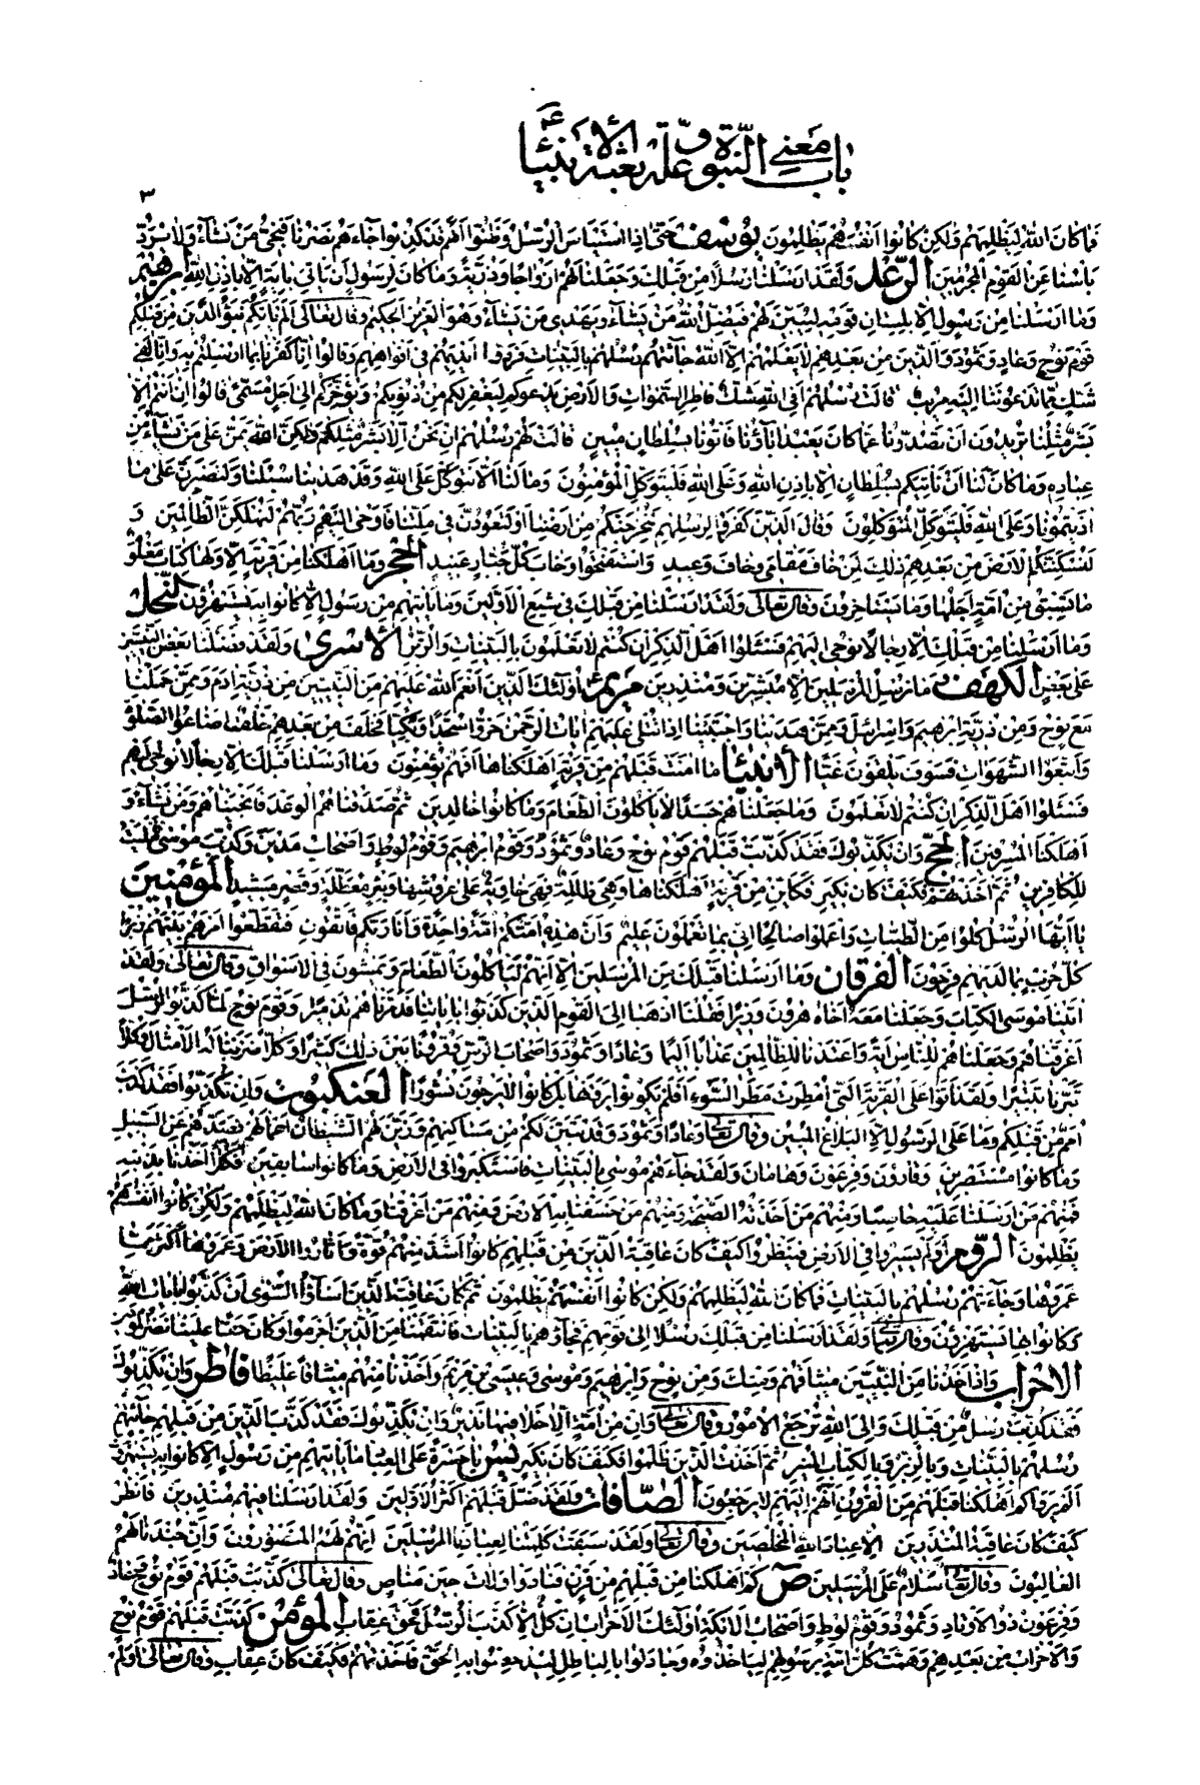 باب معنى النبوة وعلة بعثة الأنبياء
٣
فما كان الله ليظلمهم ولكن كانوا أنفسهم يظلمون يوسف حتى إذا استيأس الرسل وظنوا أنهم قد كذبوا جاءهم نصرنا فنجي من نشاء ولا يرد
بأسنا عن القوم المجرمين الرعد ولقد أرسلنا رسلا من قبلك وجعلنا لهم أزواجا وذرية وما كان لرسول أن يأتي بآية إلا بإذن الله إبرهيم
وما أرسلنا من رسول إلا بلسان قومه ليبين لهم فيضل الله من يشاء ويهدي من يشاء وهو العزيز الحكيم وقال تعالى ألم يأتكم نبؤا الذين من قبلكم
قوم نوح وعاد وثمود والذين من بعدهم لا يعلمهم إلا الله جاءتهم رسلهم بالبينات فردوا أيديهم في أفواههم وقالوا إنا كفرنا بما أرسلتم به وإنا لفي
شك مما تدعوننا إليه مريب قالت رسلهم أفي الله شك فاطر السموات والأرض يدعوكم ليغفر لكم من ذنوبكم ويؤخركم إلى أجل مسمى قالوا إن أنتم إلا
بشر مثلنا تريدون أن تصدونا عما كان يعبد آباؤنا فأتونا بسلطان مبين قالت لهم رسلهم إن نحن إلا بشر مثلكم ولكن الله يمن على من يشاء من
عباده وما كان لنا أن نأتيكم بسلطان إلا بإذن الله وعلى الله فليتوكل المؤمنون وما لنا ألا نتوكل على الله وقد هدينا سبلنا ولنصبرن على ما
آذيتمونا وعلى الله فليتوكل المتوكلون وقال الذين كفروا لرسلهم لنخرجنكم من أرضنا أو لتعودن في ملتنا فأوحى إليهم ربهم لنهلكن الظالمين و
لنسكننكم الأرض من بعدهم ذلك لمن خاف مقامي وخاف وعيد واستفتحوا وخاب كل جبار عنيد الحجر وما أهلكنا من قرية إلا ولها كتاب معلوم
ما تسبق من أمة أجلها وما يستأخرون وقال تعالى ولقد أرسلنا من قبلك في شيع الأولين وما يأتيهم من رسول إلا كانوا به يستهزؤن النحل
وما أرسلنا من قبلك إلا رجالا نوحي إليهم فسئلوا أهل الذكر إن كنتم لا تعلمون بالبينات والزبر الأسرى ولقد فضلنا بعض النبيين
على بعض الكهف وما نرسل المرسلين إلا مبشرين ومنذرين مريم أولئك الذين أنعم الله عليهم من النبيين من ذرية آدم وممن حملنا
مع نوح ومن ذرية إبرهيم وإسرائيل وممن هدينا واجتبينا إذا تتلى عليهم آيات الرحمن خروا سجدا وبكيا فخلف من بعدهم خلف أضاعوا الصلوة
واتبعوا الشهوات فسوف يلقون غيا الأنبياء ما آمنت قبلهم من قرية أهلكناها أفهم يؤمنون وما أرسلنا قبلك إلا رجالا نوحي إليهم
فسئلوا أهل الذكر إن كنتم لا تعلمون وما جعلناهم جسدا لا يأكلون الطعام وما كانوا خالدين ثم صدقناهم الوعد فأنجيناهم ومن نشاء و
أهلكنا المسرفين الحج وإن يكذبوك فقد كذبت قبلهم قوم نوح وعاد وثمود وقوم إبرهيم وقوم لوط وأصحاب مدين وكذب موسى فأمليت
للكافرين ثم أخذتهم فكيف كان نكير فكأين من قرية أهلكناها وهي ظالمة فهي خاوية على عروشها وبئر معطلة وقصر مشيد المؤمنين
يا أيها الرسل كلوا من الطيبات واعملوا صالحا إني بما تعملون عليم وأن هذه أمتكم أمة واحدة وأنا ربكم فاتقون فتقطعوا أمرهم بينهم زبرا
كل حزب بما لديهم فرحون الفرقان وما أرسلنا قبلك من المرسلين إلا إنهم ليأكلون الطعام ويمشون في الأسواق وقال تعالى ولقد
آتينا موسى الكتاب وجعلنا معه أخاه هرون وزيرا فقلنا اذهبا إلى القوم الذين كذبوا بآياتنا فدمرناهم تدميرا وقوم نوح لما كذبوا الرسل
أغرقناهم وجعلناهم للناس آية وأعتدنا للظالمين عذابا أليما وعادا وثمود وأصحاب الرس وقرونا بين ذلك كثيرا وكلا ضربنا له الأمثال وكلا
تبرنا تتبيرا ولقد أتوا على القرية التي أمطرت مطر السوء أفلم يكونوا يرونها بل كانوا لا يرجون نشورا العنكبوت وإن تكذبوا فقد كذب
أمم من قبلكم وما على الرسول إلا البلاغ المبين وقال تعالى وعادا وثمود وقد تبين لكم من مساكنهم وزين لهم الشيطان أعمالهم فصدهم عن السبيل
وما كانوا مستنصرين وقارون وفرعون وهامان ولقد جاءهم موسى بالبينات فاستكبروا في الأرض وما كانوا سابقين فكلا أخذنا بذنبه
فمنهم من أرسلنا عليه حاصبا ومنهم من أخذته الصيحة ومنهم من خسفنا به الأرض ومنهم من أغرقنا وما كان الله ليظلمهم ولكن كانوا أنفسهم
يظلمون الروم أولم يسيروا في الأرض فينظروا كيف كان عاقبة الذين من قبلهم كانوا أشد منهم قوة وأثاروا الأرض وعمروها أكثر مما
عمروها وجاءتهم رسلهم بالبينات فما كان الله ليظلمهم ولكن كانوا أنفسهم يظلمون ثم كان عاقبة الذين أساؤا السوأى أن كذبوا بآيات الله
وكانوا بها يستهزؤن وقال تعالى ولقد أرسلنا من قبلك رسلا إلى قومهم فجاؤهم بالبينات فانتقمنا من الذين أجرموا وكان حقا علينا نصر المؤمنين
الأحزاب وإذ أخذنا من النبيين ميثاقهم ومنك ومن نوح وإبرهيم وموسى وعيسى بن مريم وأخذنا منهم ميثاقا غليظا فاطر وإن يكذبوك
فقد كذبت رسل من قبلك وإلى الله ترجع الأمور وقال تعالى وإن من أمة إلا خلا فيها نذير وإن يكذبوك فقد كذب الذين من قبلهم جاءتهم
رسلهم بالبينات وبالزبر وبالكتاب المنير ثم أخذت الذين ظلموا فكيف كان نكير يس يا حسرة على العباد ما يأتيهم من رسول إلا كانوا به يستهزؤن
ألم يروا كم أهلكنا قبلهم من القرون أنهم إليهم لا يرجعون الصافات ولقد ضل قبلهم أكثر الأولين ولقد أرسلنا فيهم منذرين فانظر
كيف كان عاقبة المنذرين إلا عباد الله المخلصين وقال تعالى ولقد سبقت كلمتنا لعبادنا المرسلين إنهم لهم المنصورون وإن جندنا لهم
الغالبون وقال تعالى سلام على المرسلين ص كم أهلكنا من قبلهم من قرن فنادوا ولات حين مناص وقال تعالى كذبت قبلهم قوم نوح وعاد
وفرعون ذو الأوتاد وثمود وقوم لوط وأصحاب الأيكة أولئك الأحزاب إن كل إلا كذب الرسل فحق عقاب المؤمن كذبت قبلهم قوم نوح
والأحزاب من بعدهم وهمت كل أمة برسولهم ليأخذوه وجادلوا بالباطل ليدحضوا به الحق فأخذتهم فكيف كان عقاب وقال تعالى أولم